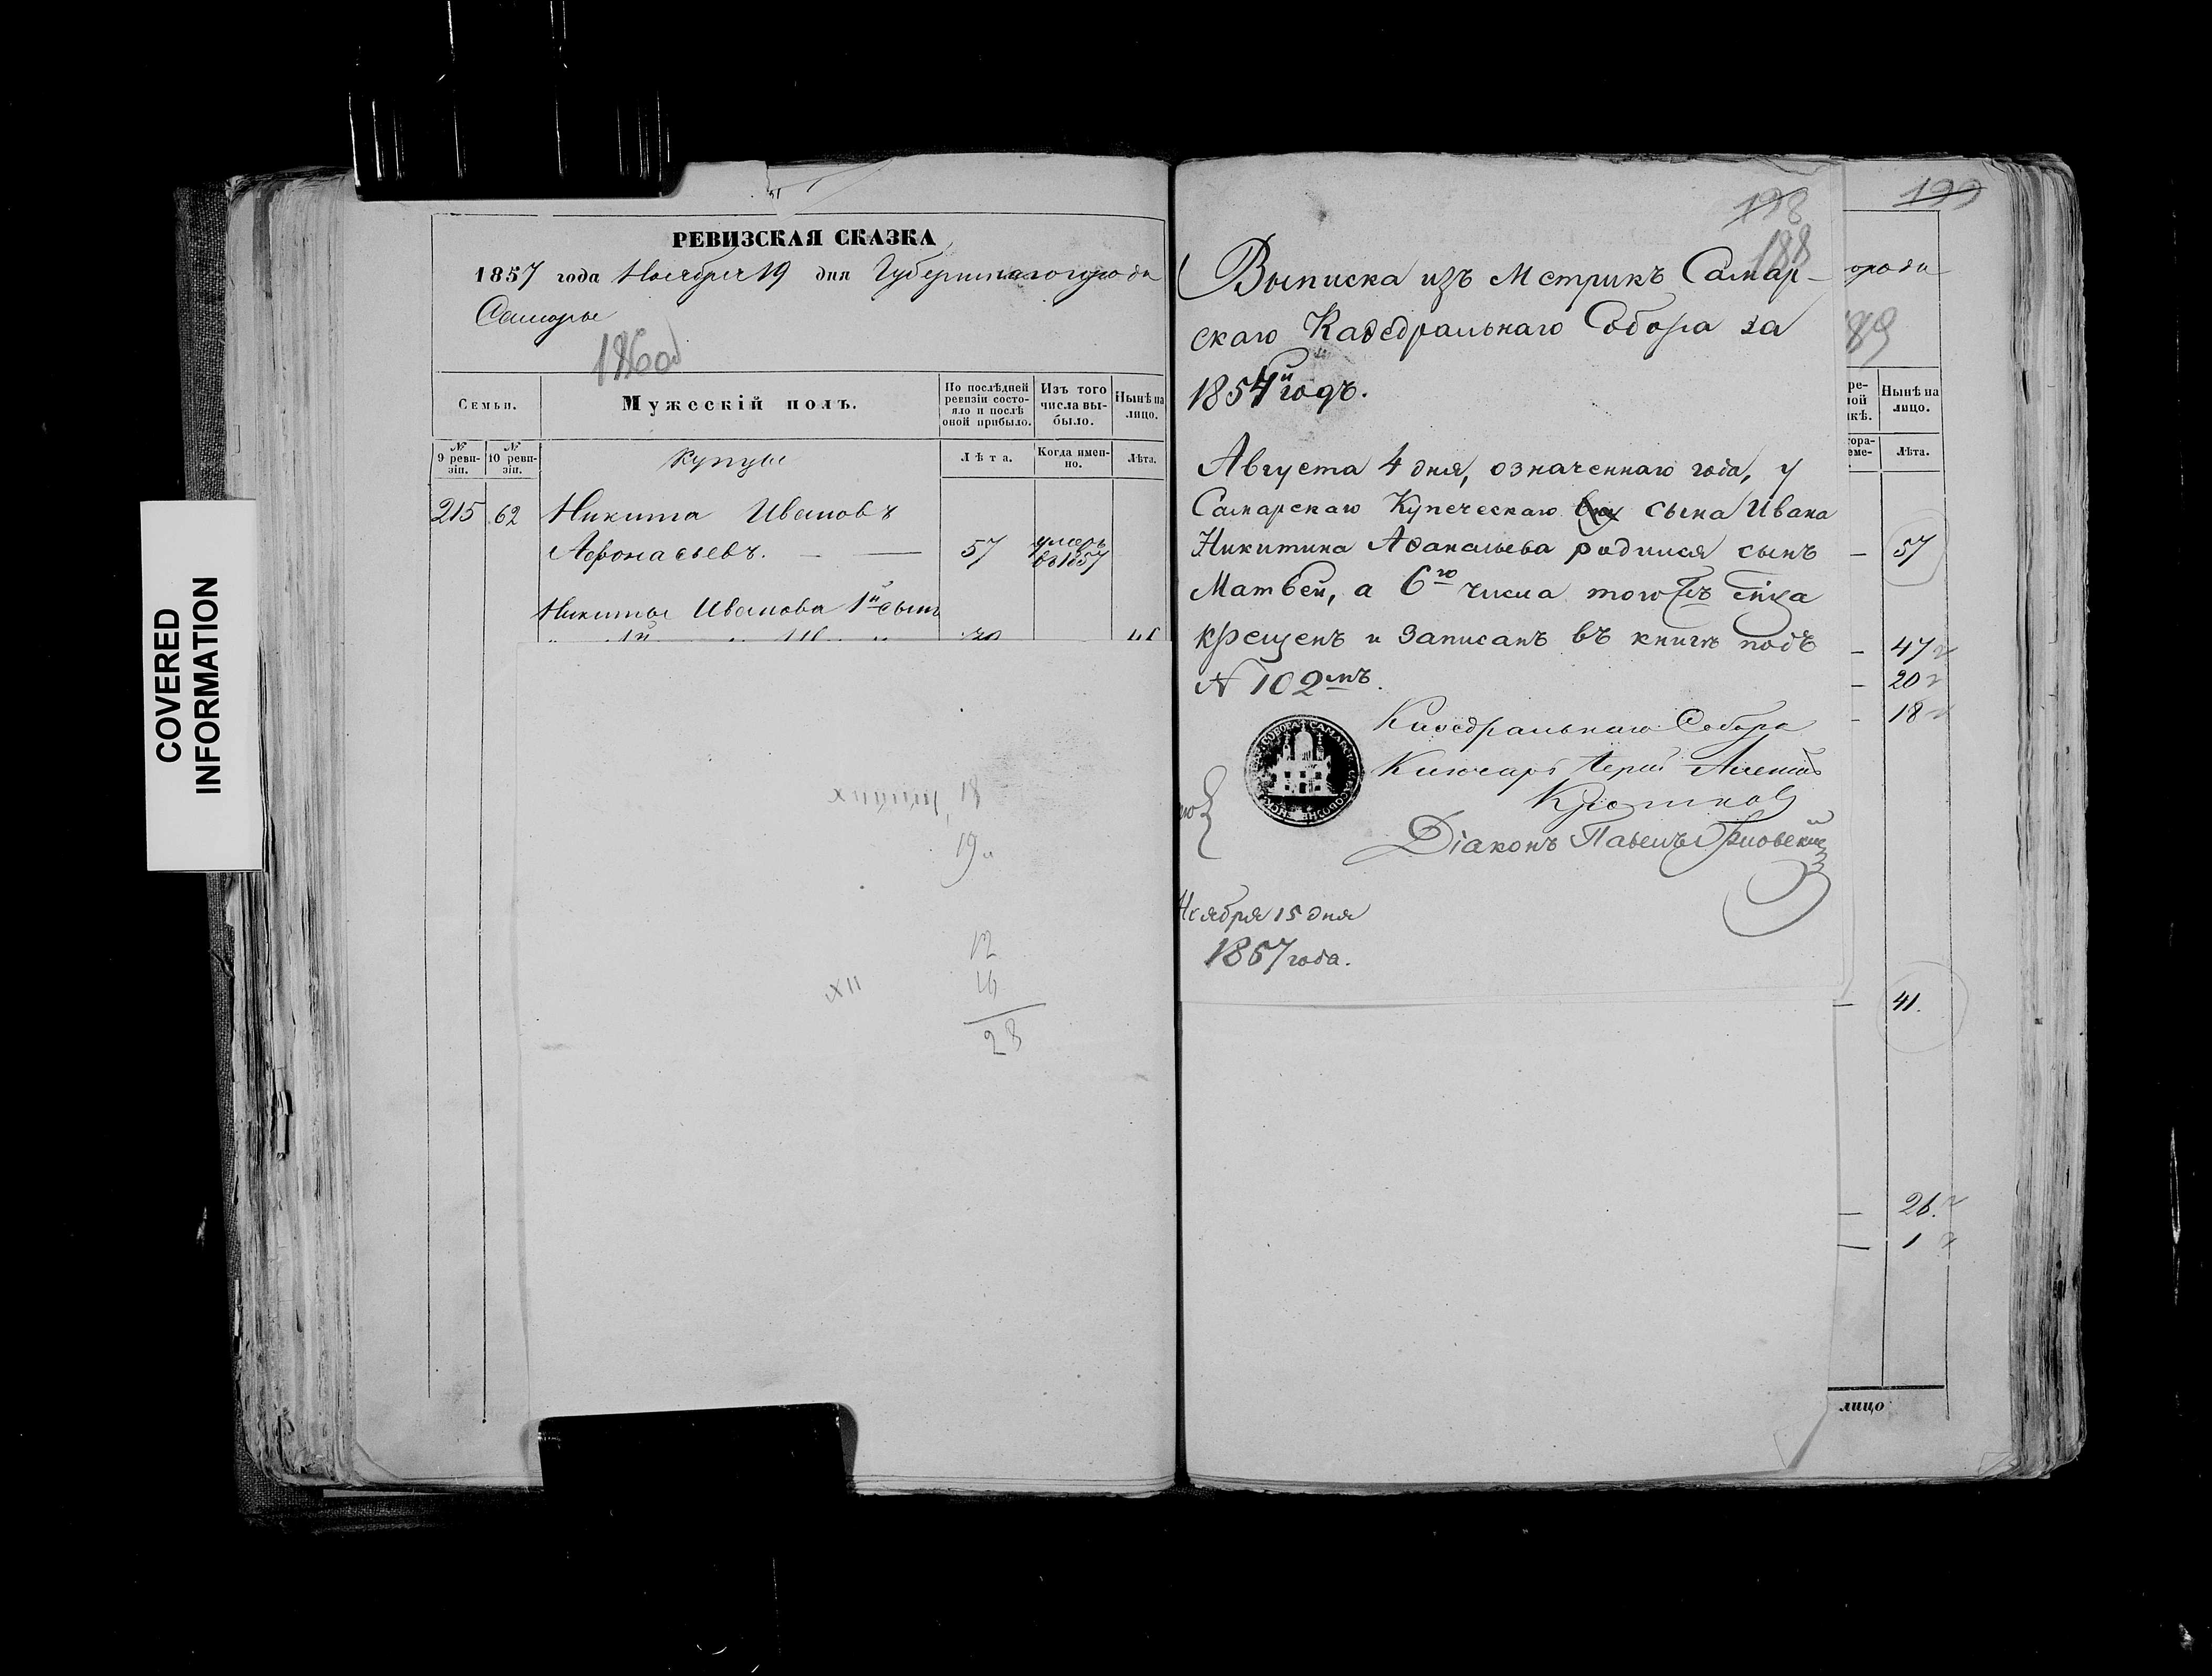 COVERED
INFORMATION
РЕВИЗСКАЯ СКАЗКА
1857 года Ноября 19 дня Губернскаго города
Самары
186 об
Семьи.
Мужескій полъ.
По послѣдней ревизіи состояло и послѣ оной прибыло.
Изъ того числа выбыло.
Нынѣ на лицо.
№ 9 ревизіи.
№ 10 ревизіи.
Купцы
Лѣта.
Когда именно.
Лѣта.
215 62 Никита Ивановъ
Афонасьевъ. — — 57 умеръ въ 1857
Никиты Иванова 1й сынъ
18
19
12
16
28
XII
198
188
Выписка изъ Метрикъ Самар-
скаго Каѳедральнаго Собора за
1854й годъ.
Августа 4 дня, означеннаго года, у
Самарскаго Купеческаго сына Ивана
Никитина Аѳанасьева родился сынъ
Матвей, а 6го числа тогожъ м-ца
крещенъ и записанъ въ книгѣ подъ
№ 102мъ.
Каѳедральнаго Собора
Ключарь Іерей
Діаконъ Павелъ
Ноября 15 дня
1857 года.
199
города
189
Нынѣ на лицо.
Лѣта.
— 57
— 47
— 20
— 18
— 41.
— 26.
— 1
лицо